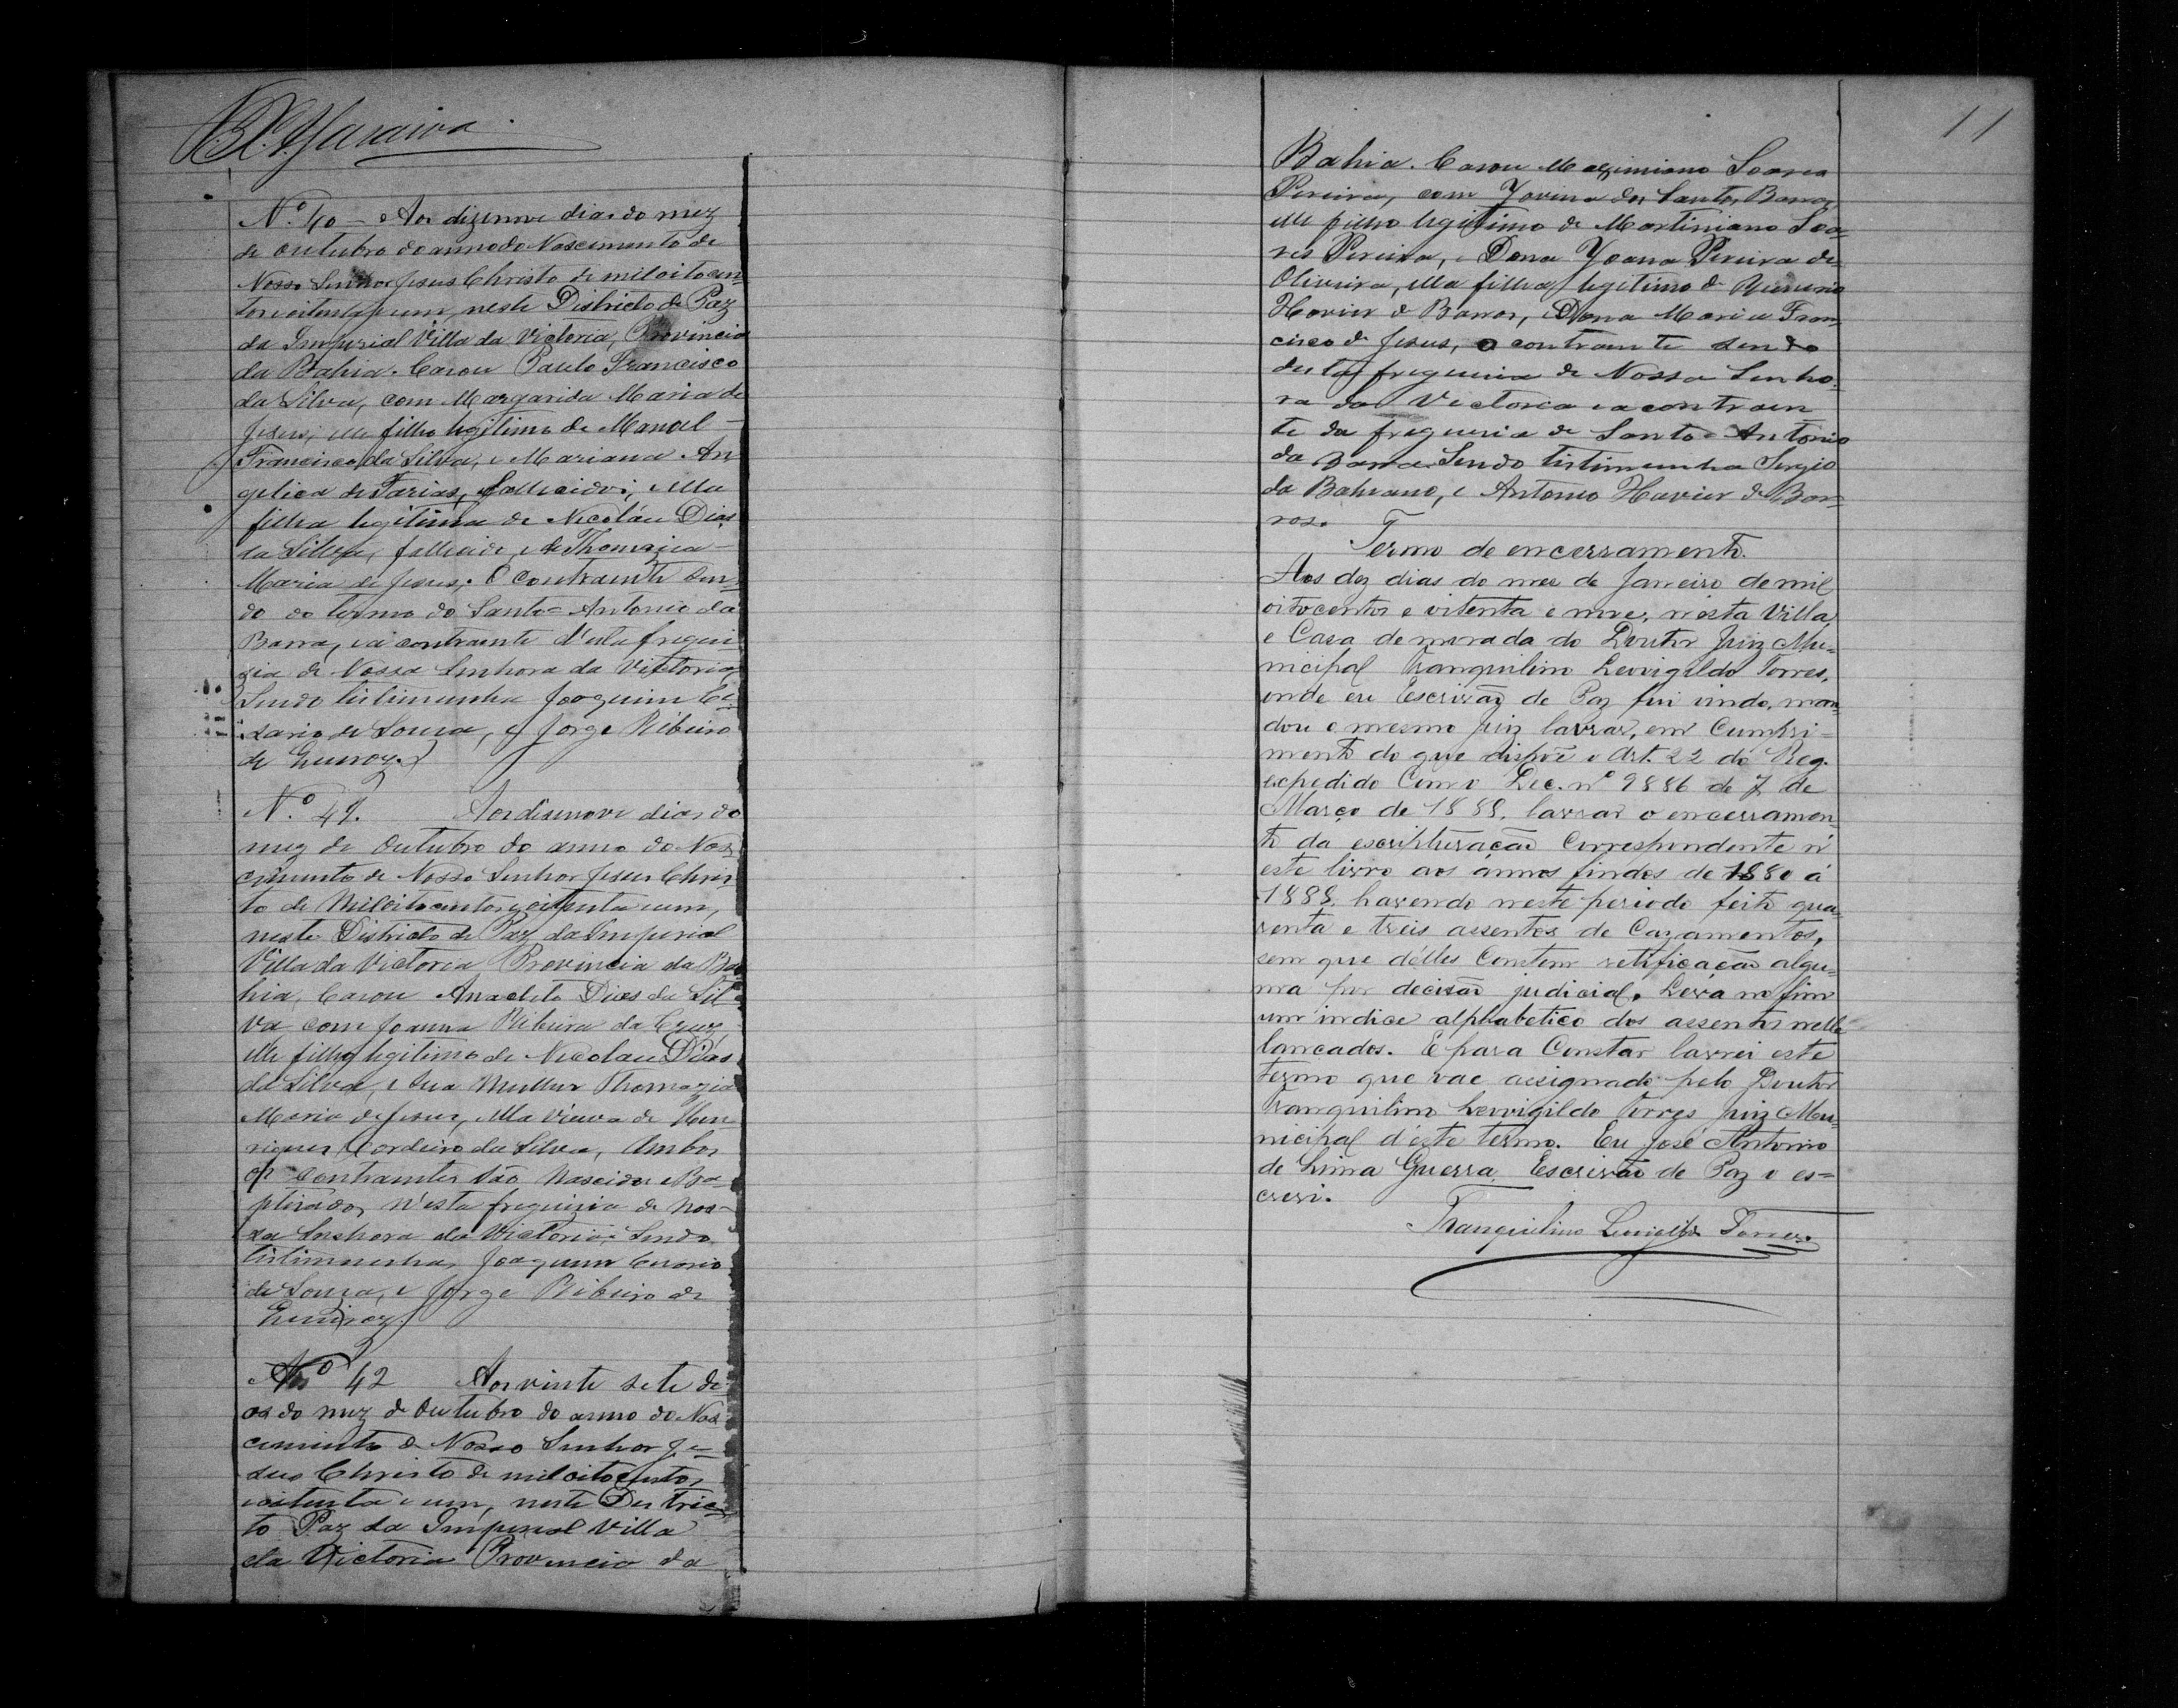 11
Nº. 40 - Aos dizenove dias do mez
de Outubro do anno do Nascimento de
Nosso Senhor Jesus Christo de mil oito cen
tos oitenta e um, neste Districto de Paz
da Imperial Villa da Victoria, Provincia
da Bahia. Casou Paulo Francisco
da Silva, com Margarida Maria de
Jesus, elle filho legitimo de Manoel
Francisco da Silva, e Mariana An
gelica de Farias, fallecidos, ella
filha legitima de Nicoláu Dias
da Silva, fallecido, e de Thomazia
Maria de Jesus,. O contraente sen
do do termo do Santo Antonio da
Barra, e a contraente d'esta fregui
zia de Nossa Senhora da Victoria,
Sendo tistimunha Joaquim Ce
sario de Souza, e Jorge Ribeiro
de
Nº. 41. Aos disenove dias do
mez de Outubro do anno do Nas
cimento de Nosso Senhor Jesus Chris
to de Mil oito centos e oitenta e um,
neste Districto de Paz da Imperial
Villa da Victoria Provincia da Ba
hia, Casou Anacleto Dias da Sil
va com Joanna Ribeira da Cruz
elle filho legitimo de Nicolau Dias
da Silva, e sua Mulher Thomazia
Maria de Jesus, ella viuva de Hen
riques Cordeiro da Silva, Ambos
os contraentes são nascidos e Ba
ptisados n'esta freguizia de Nos-
sa Senhora da Victoria: Sendo
tistimunhas Joaquim Cesario
de Souza, e Jorge Ribeiro de

Nº 42 Aos vinte sete di
as do mez de Outubro do anno do Nas
cimento de Nosso Senhor Je-
sus Christo de mil oito centos
e oitenta e um, neste Destric
to Paz da Imperial Villa
da Victoria Provincia da
Bahia. Casou Maximiano Soares
Pereira, com Jovina dos Santos Barros,
elle filho legitimo de Martiniano Soa-
res Pereira, e Dona Joana Pereira de
Oliveira, ella filha legitima de
Havier de Barros, e Dona Maria Fran
cisca de Jesus, o contraente sendo
desta freguizia de Nossa Senho-
ra da Victoria e a contraen
te da freguezia de Santo Antonio
da Barra. Sendo tistimunha Sergio
da Bahiano, e Antonio Havier de Bar
ros.
Termo de encerramento.
Aos dez dias do mez de Janeiro de mil
oitocentos e oitenta e nove, nesta Villa,
e Casa de morada do Doutor Juiz Mu-
nicipal Tranquilino Leovigildo Torres,
onde eu Escrivão de Paz fui vindo, man-
dou o mesmo juiz lavrar, em Cumpri-
mento do que dispoe o Art. 22 do Reg.
expedido Com o Dec. nº 9886 de 7 de
Março de 1888. lavrar o encerramen-
to da escripturação Correspondente n'
este livro aos annos findos de 1880 á
1888. havendo neste periodo feito qua-
renta e treis assentos de Cazamentos,
sem que d'elles Constem retificação algu-
ma por decisão judicial. Leva no fim
um indice alphabetico dos assentos nelle
lançados. E para Constar lavrei este
termo que vae assignado pelo Doutor
Tranquilino Leovigildo Torres Juiz Mu-
nicipal d'este termo. Eu José Antonio
de Lima Guerra Escrivão de Paz o es=
crevi.
Tranquilino Leovigildo Torres